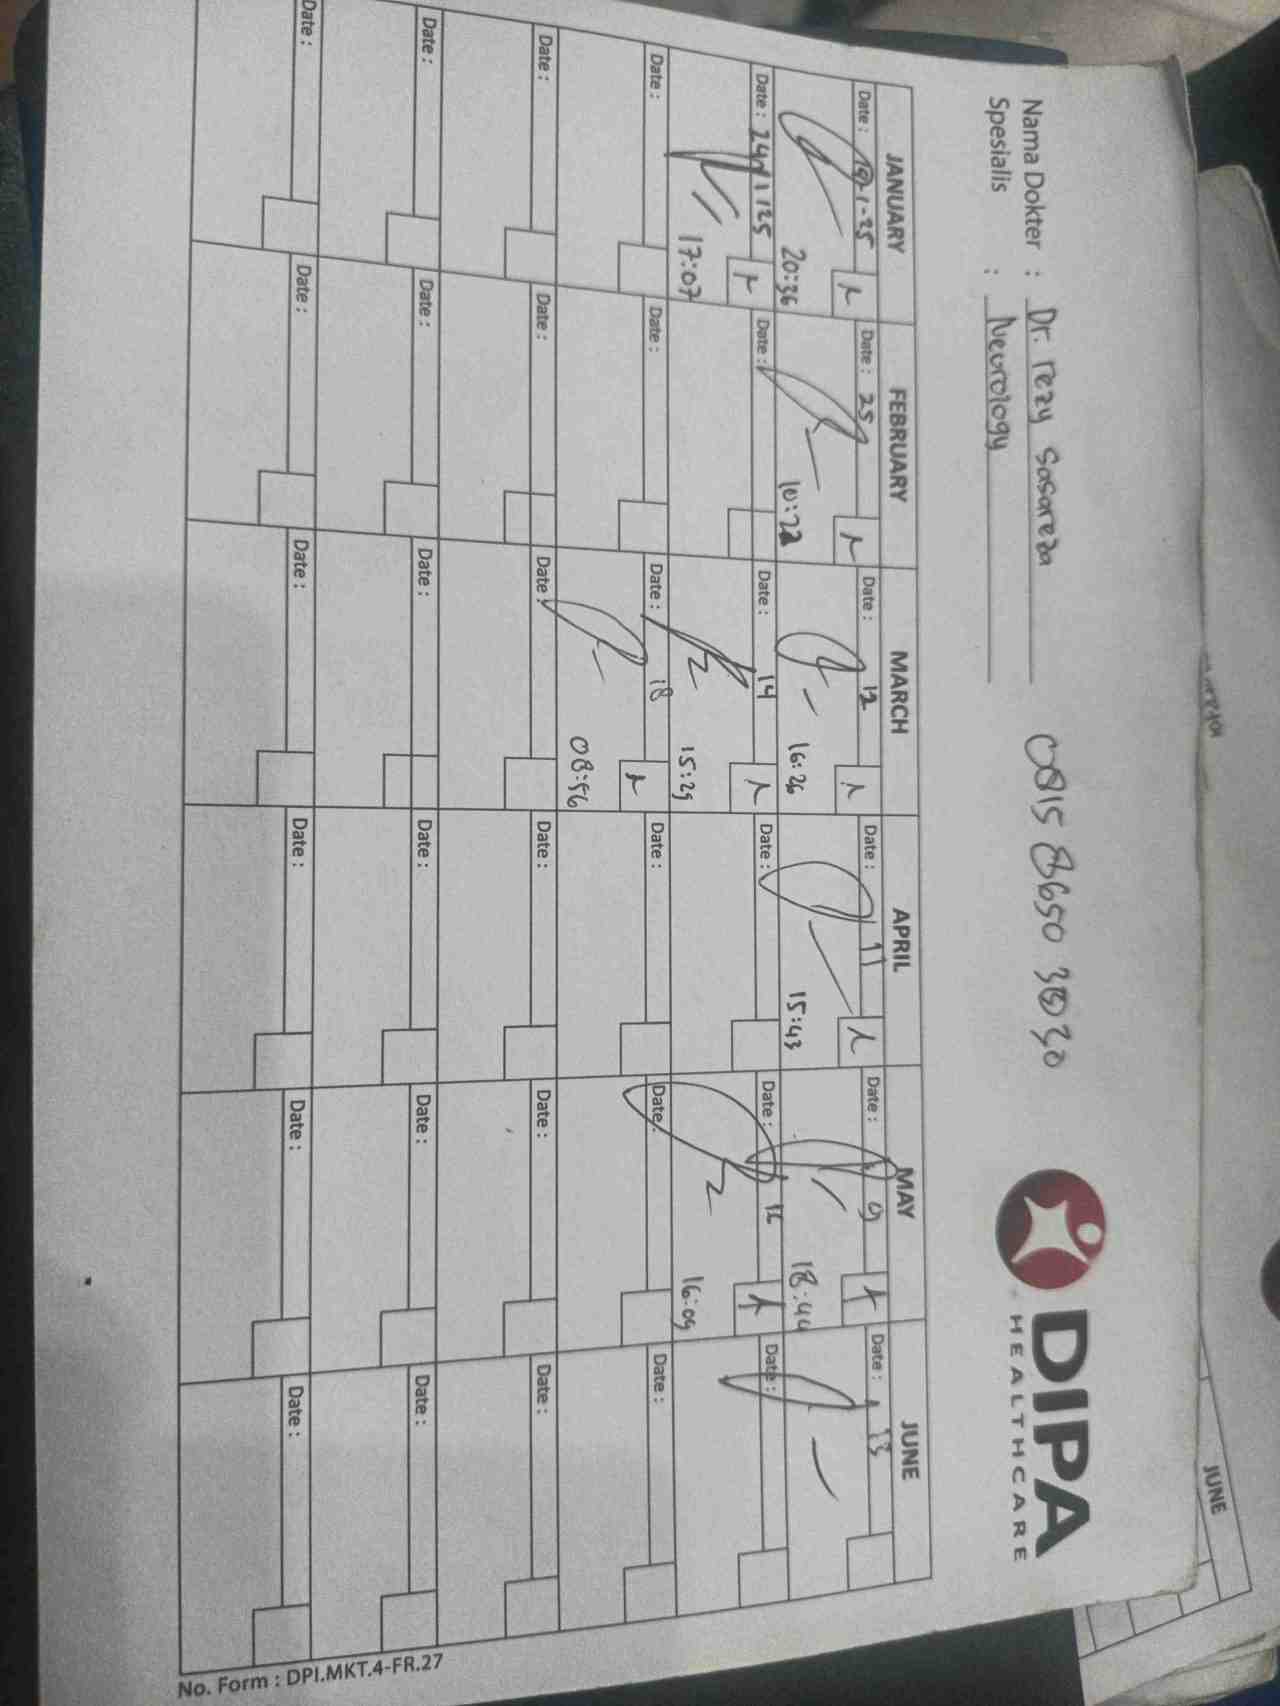 Nama Dokter : Dr. rezy sasareza
0815 8650 3030
Spesialis : Neurology
DIPA
HEALTHCARE
JANUARY FEBRUARY MARCH APRIL MAY JUNE
Date : Date : 25 Date : 12 Date : 11 Date : 9 Date : 13
20:36 10:22 16:26 15:43 18:44
Date : 24/1/25 Date : Date : 14 Date : Date : 16 Date :
17:07 15:29 16:09
Date : Date : Date : 18 Date : Date : Date :
08:56
Date : Date : Date : Date : Date : Date :
Date : Date : Date : Date : Date : Date :
Date : Date : Date : Date : Date : Date :
No. Form : DPI.MKT.4-FR.27
JUNE